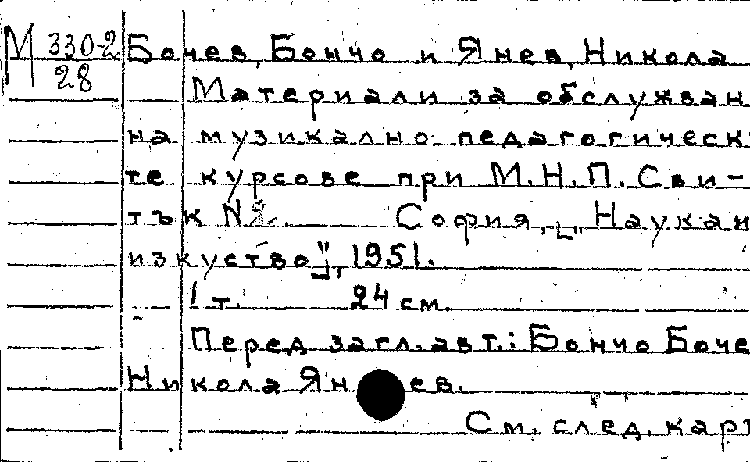 М 330-2
28
Бочев, Бончо и Янев, Никола
Материали за обслужван
на музикално педагогическ
те курсове при М.Н.П. Сви-
тък №2. София, „Наука и
изкуство", 1951.
1 т. 24 см.
Перед загл. авт.: Бончо Боче
Никола Янев.
См. след. карт